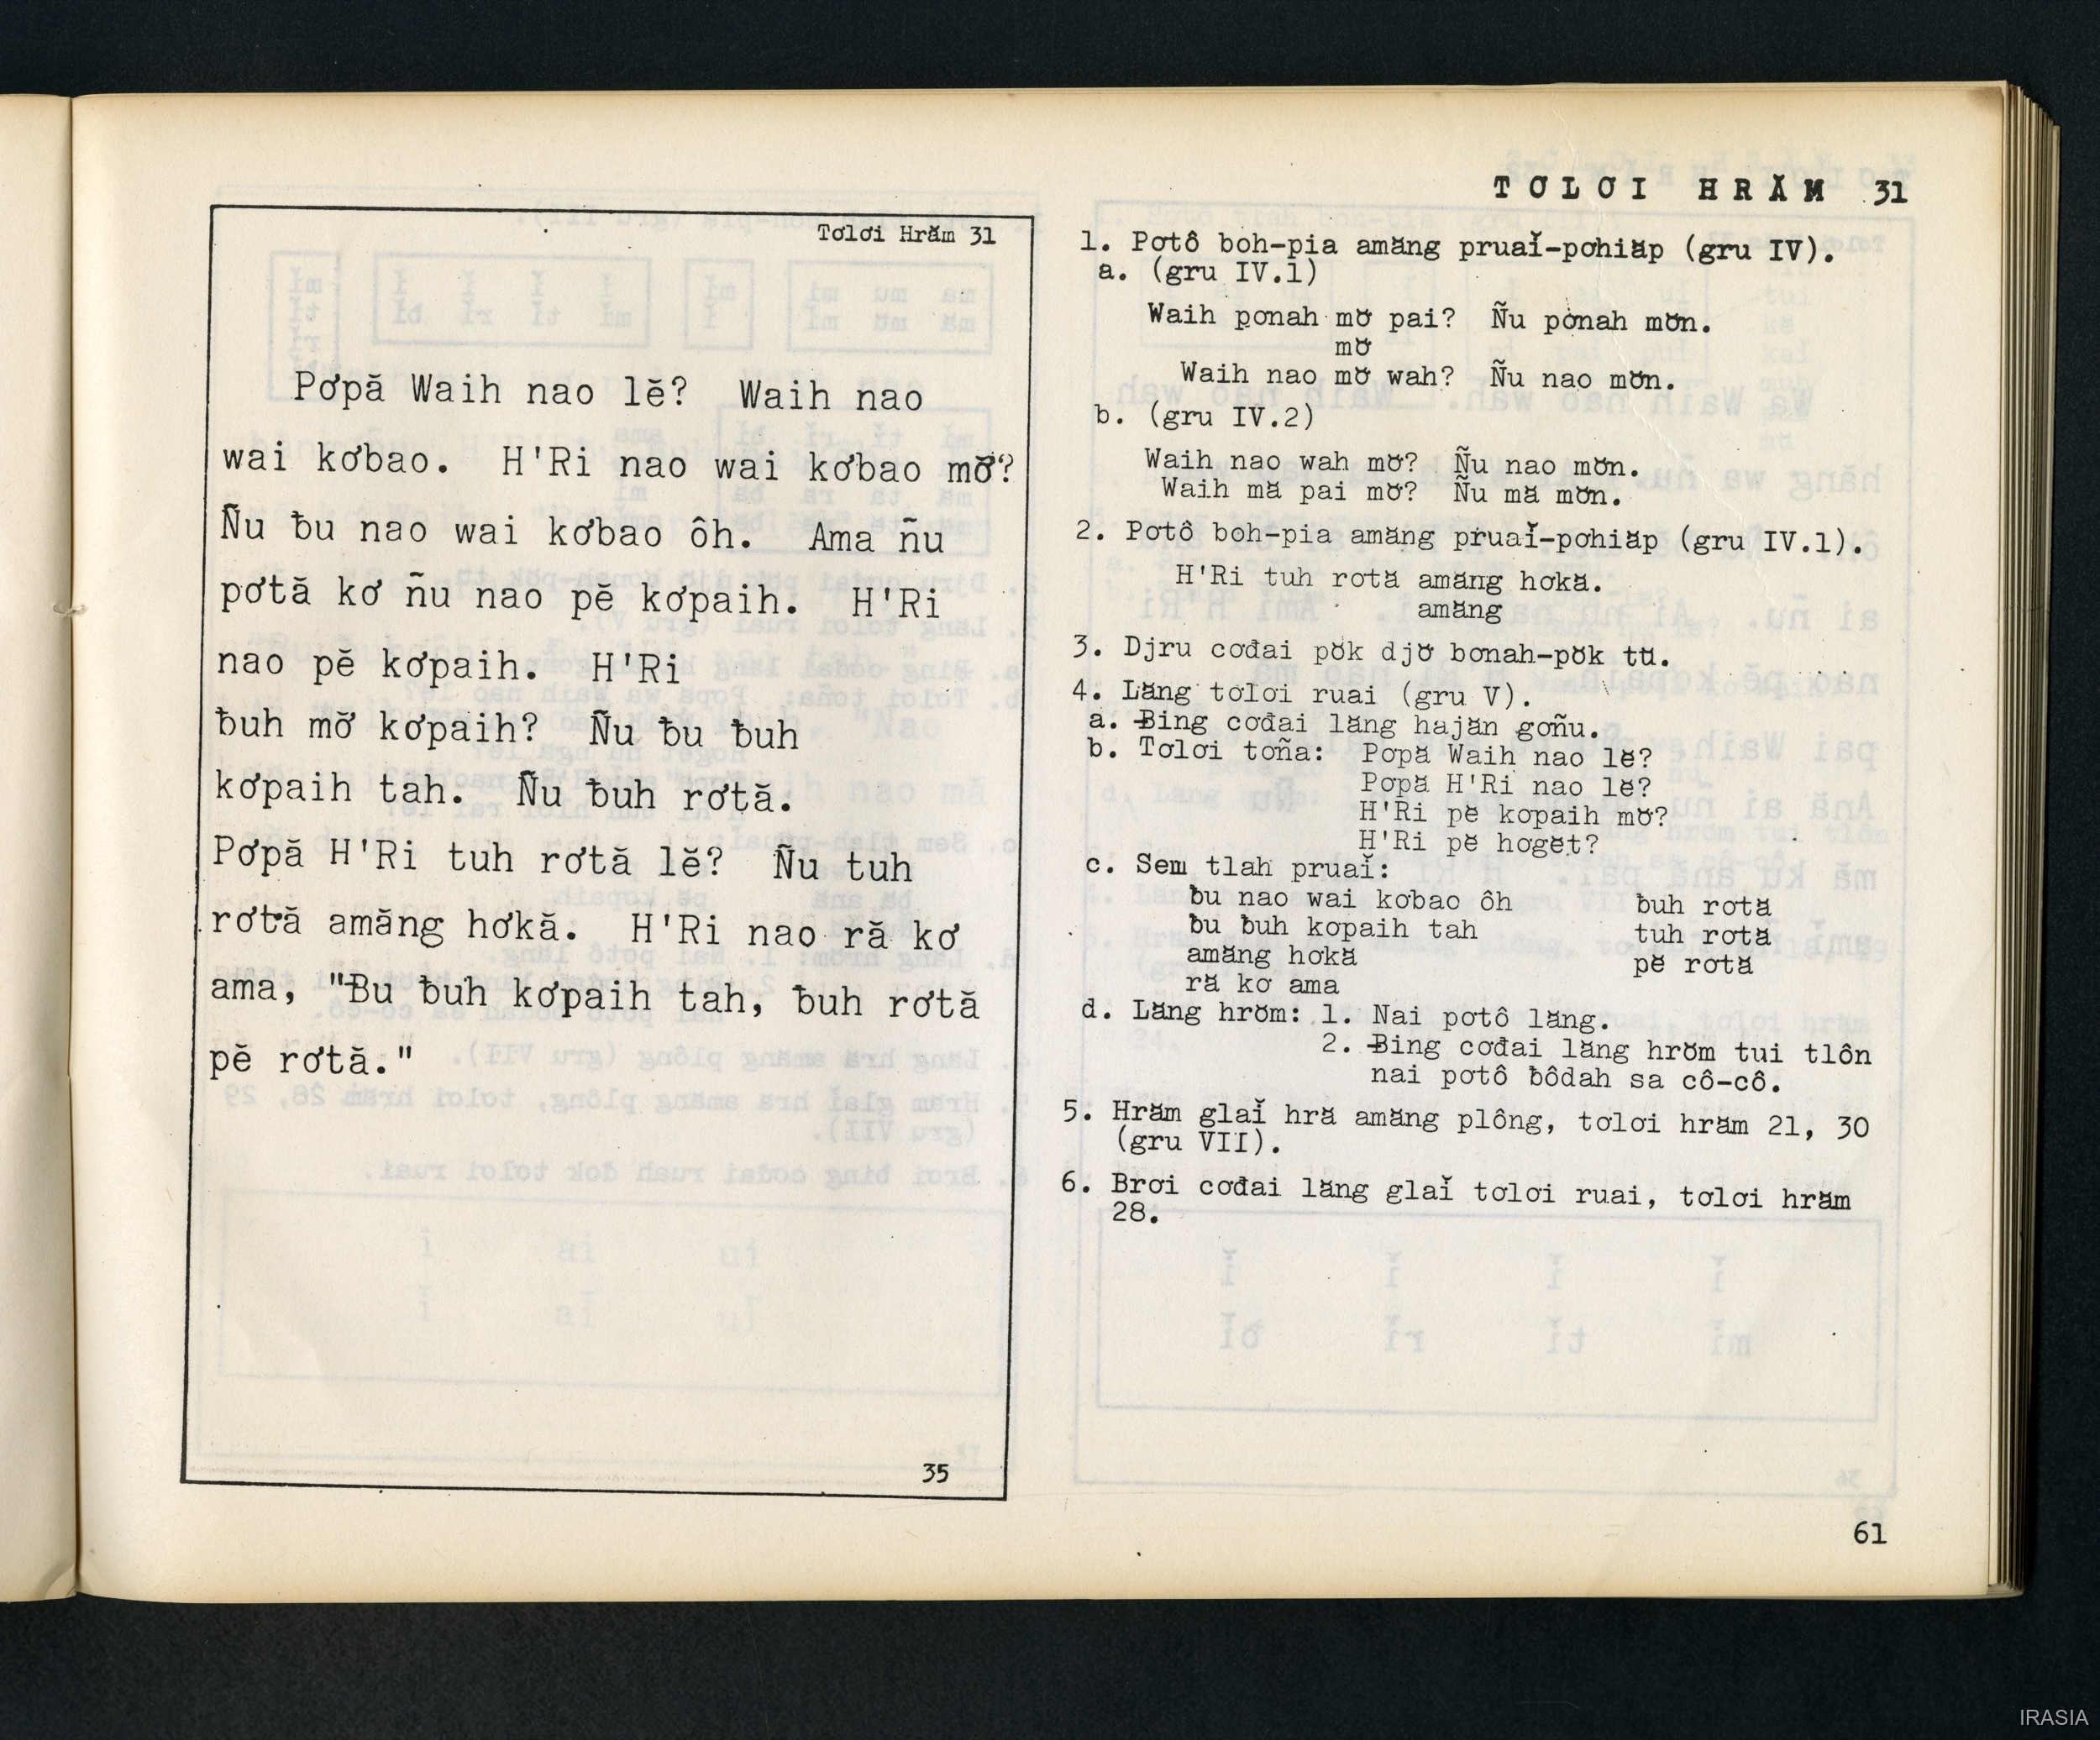 Tơlơi Hrăm 31
Pơpă Waih nao lĕ? Waih nao
wai kơbao. H'Ri nao wai kơbao mơ̆?
Ñu ƀu nao wai kơbao ôh. Ama ñu
pơtă kơ ñu nao pĕ kơpaih. H'Ri
nao pĕ kơpaih. H'Ri
ƀuh mơ̆ kơpaih? Ñu ƀu ƀuh
kơpaih tah. Ñu ƀuh rơtă.
Pơpă H'Ri tuh rơtă lĕ? Ñu tuh
rơtă amăng hơkă. H'Ri nao ră kơ
ama, "Ƀu ƀuh kơpaih tah, ƀuh rơtă
pĕ rơtă."
35
TƠLƠI HRĂM 31
1. Pơtô boh-pia amăng pruaĭ-pơhiăp (gru IV).
a. (gru IV.1)
Waih pơnah mơ̆ pai? Ñu pơnah mơ̆n.
mơ̆
Waih nao mơ̆ wah? Ñu nao mơ̆n.
b. (gru IV.2)
Waih nao wah mơ̆? Ñu nao mơ̆n.
Waih mă pai mơ̆? Ñu mă mơ̆n.
2. Pơtô boh-pia amăng pruaĭ-pơhiăp (gru IV.1).
H'Ri tuh rơtă amăng hơkă.
amăng
3. Djru cơđai pŏk djơ̆ bơnah-pŏk tŭ.
4. Lăng tơlơi ruai (gru V).
a. Ƀing cơđai lăng hajăn gơñu.
b. Tơlơi tơña: Pơpă Waih nao lĕ?
Pơpă H'Ri nao lĕ?
H'Ri pĕ kơpaih mơ̆?
H'Ri pĕ hơgĕt?
c. Sem tlah pruaĭ:
ƀu nao wai kơbao ôh ƀuh rơtă
ƀu ƀuh kơpaih tah tuh rơtă
amăng hơkă pĕ rơtă
ră kơ ama
d. Lăng hrŏm: 1. Nai pơtô lăng.
2. Ƀing cơđai lăng hrŏm tui tlôn
nai pơtô ƀôdah sa cô-cô.
5. Hrăm glaĭ hră amăng plông, tơlơi hrăm 21, 30
(gru VII).
6. Brơi cơđai lăng glaĭ tơlơi ruai, tơlơi hrăm
28.
61
IRASIA